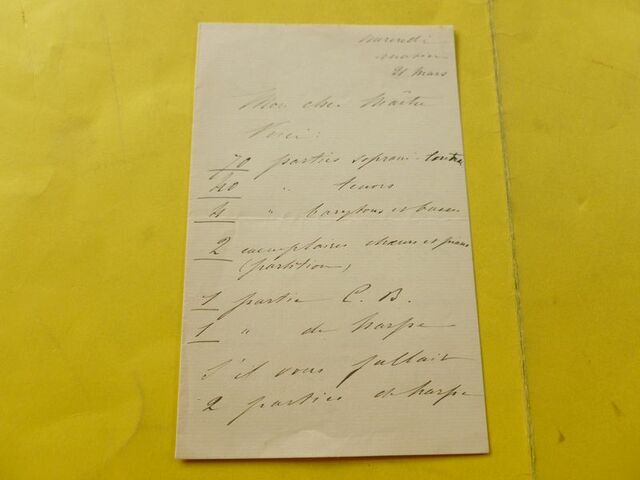 mercredi
matin
21 Mars
Mon cher Maître
Voici :
70 parties soprani-contra
40 " tenors
4 " barytons et basses
2 exemplaires chœurs et piano
(partition)
1 partie C. B.
1 " de harpe
S'il vous fallait
2 parties de harpe